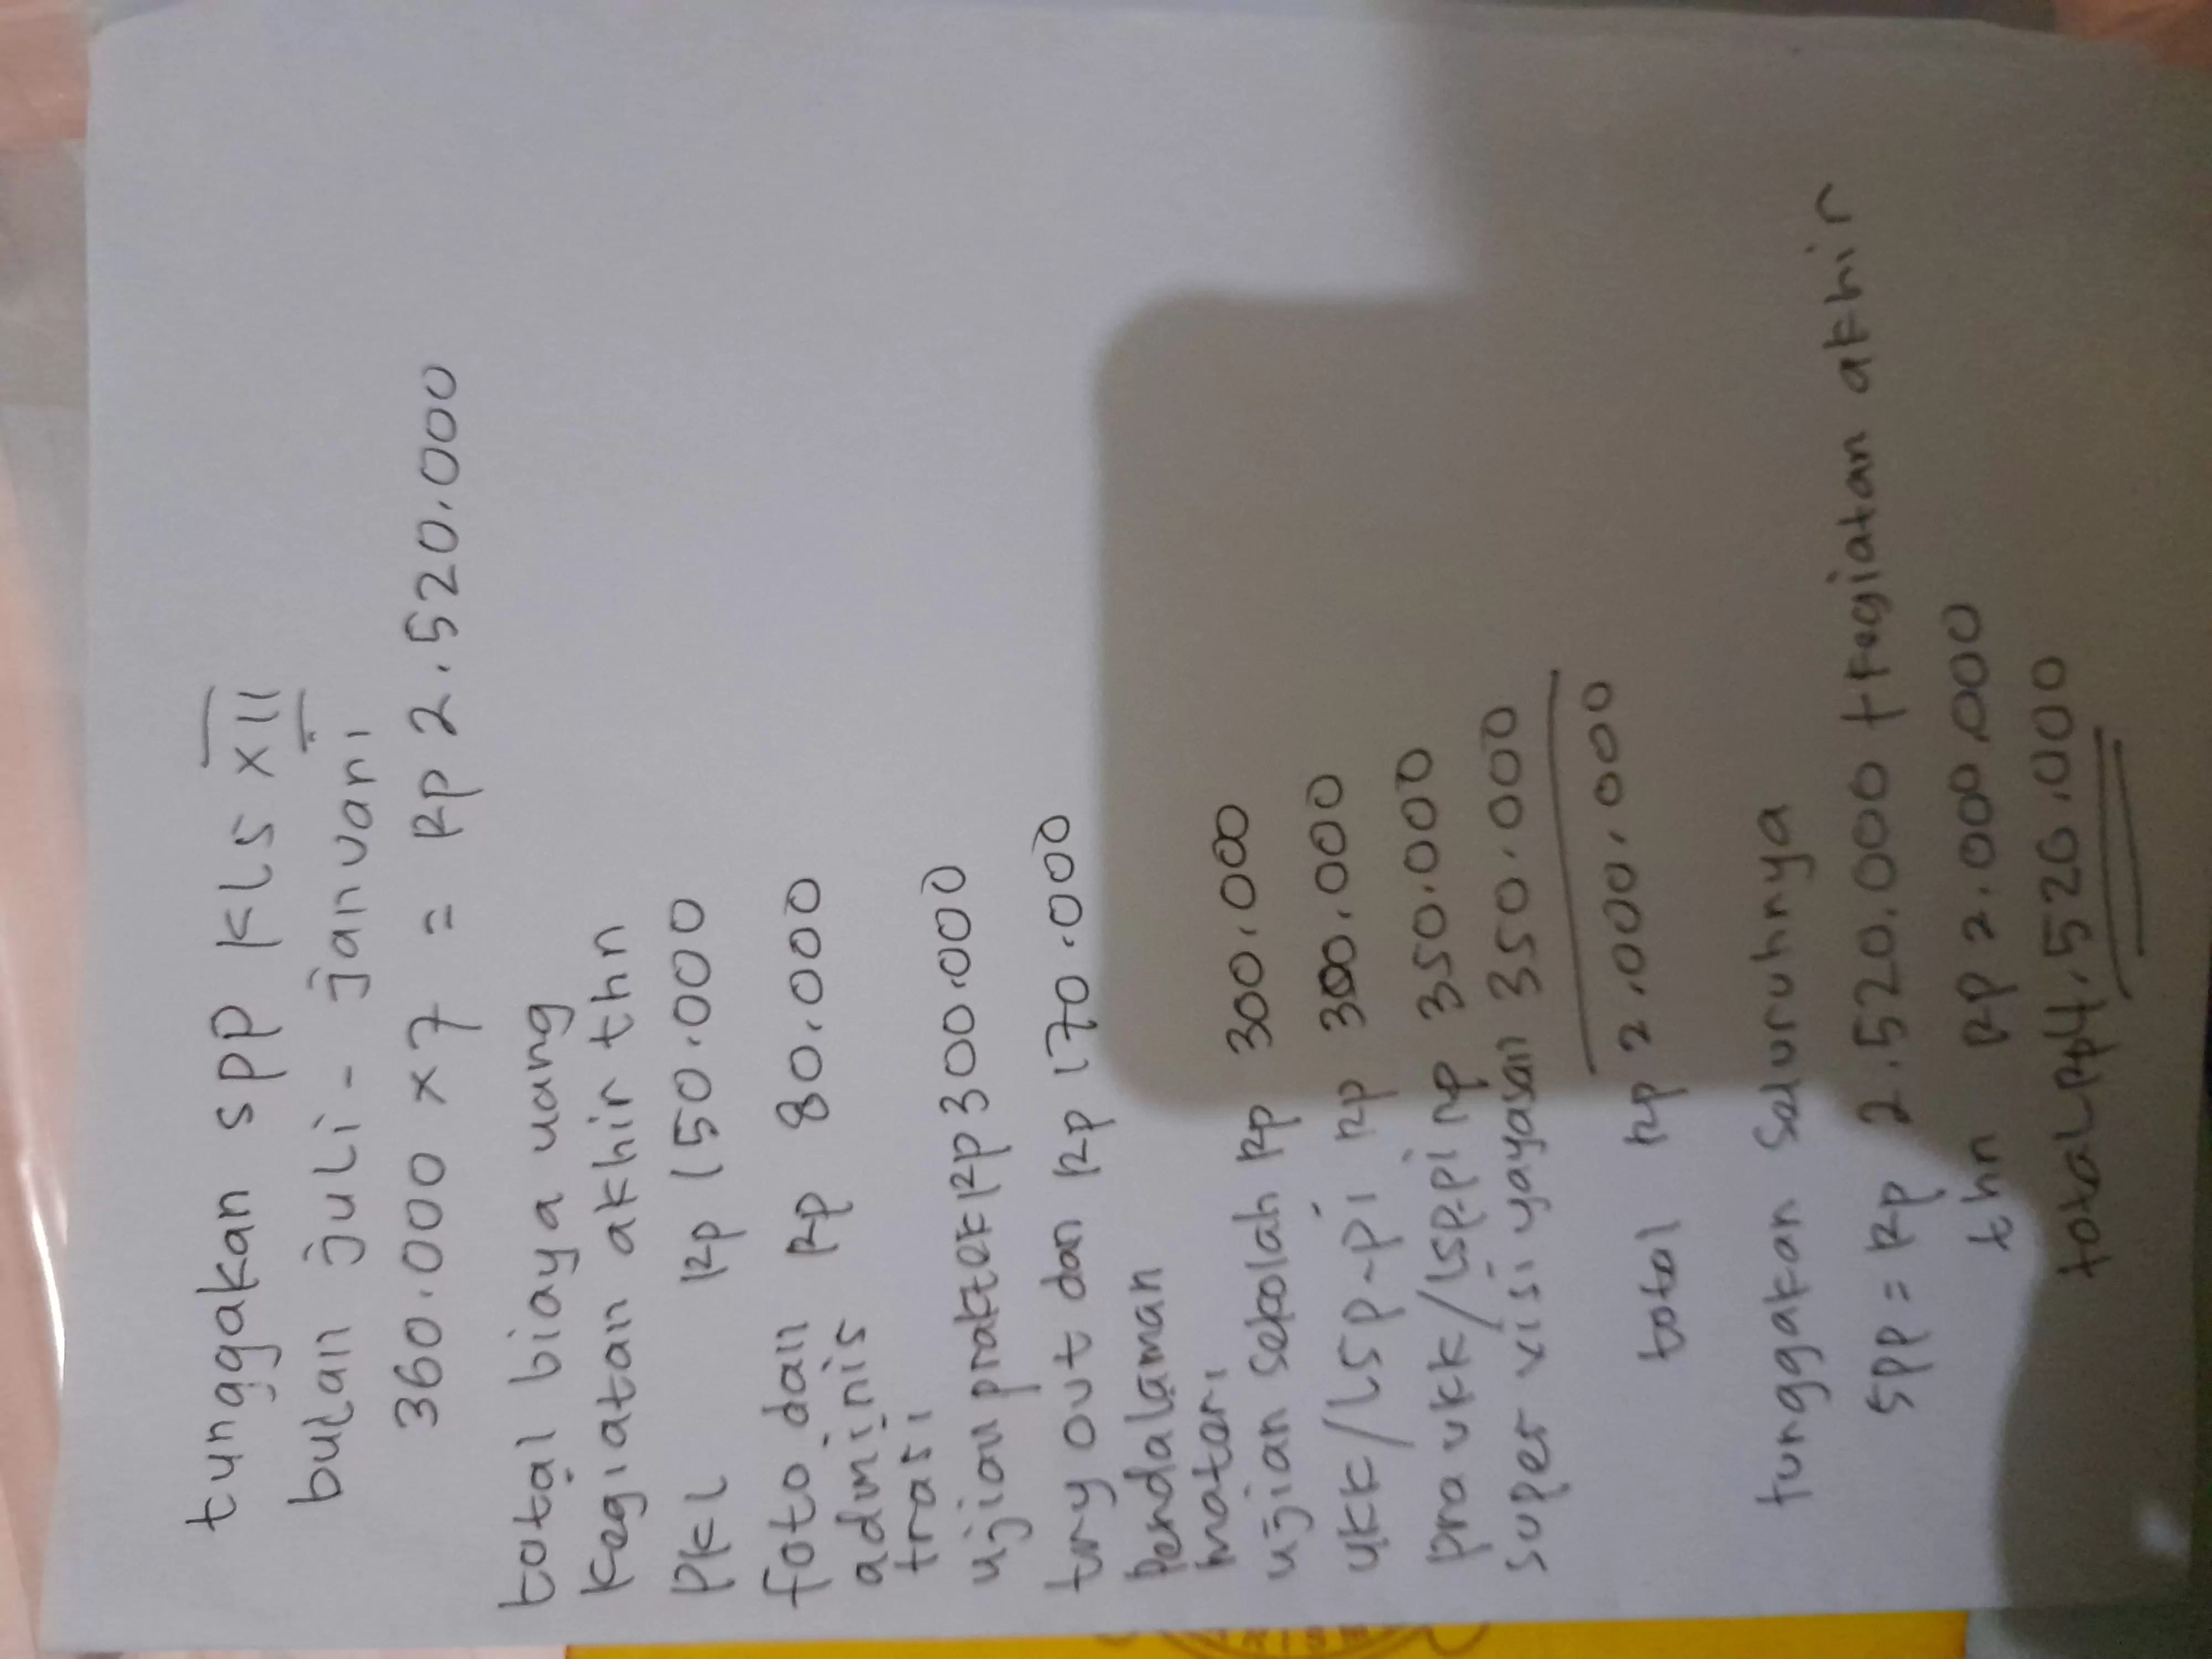 tunggakan spp kls XII
bulan juli - januari
360.000 x 7 = Rp 2.520.000
total biaya uang
kegiatan akhir thn
PKL Rp 150.000
foto dan Rp 80.000
adminis
trasi
ujian praktek Rp 300.000
try out dan Rp 170.000
Pendalaman
materi
ujian sekolah Rp 300.000
ukk/LSP-Pi Rp 300.000
pra ukk/LSP.Pi rp 350.000
super visi yayasan 350.000
total Rp 2.000.000
tunggakan seluruhnya
SPP = Rp 2.520.000 + kegiatan akhir
thn Rp 2.000.000
total Rp 4.520.000